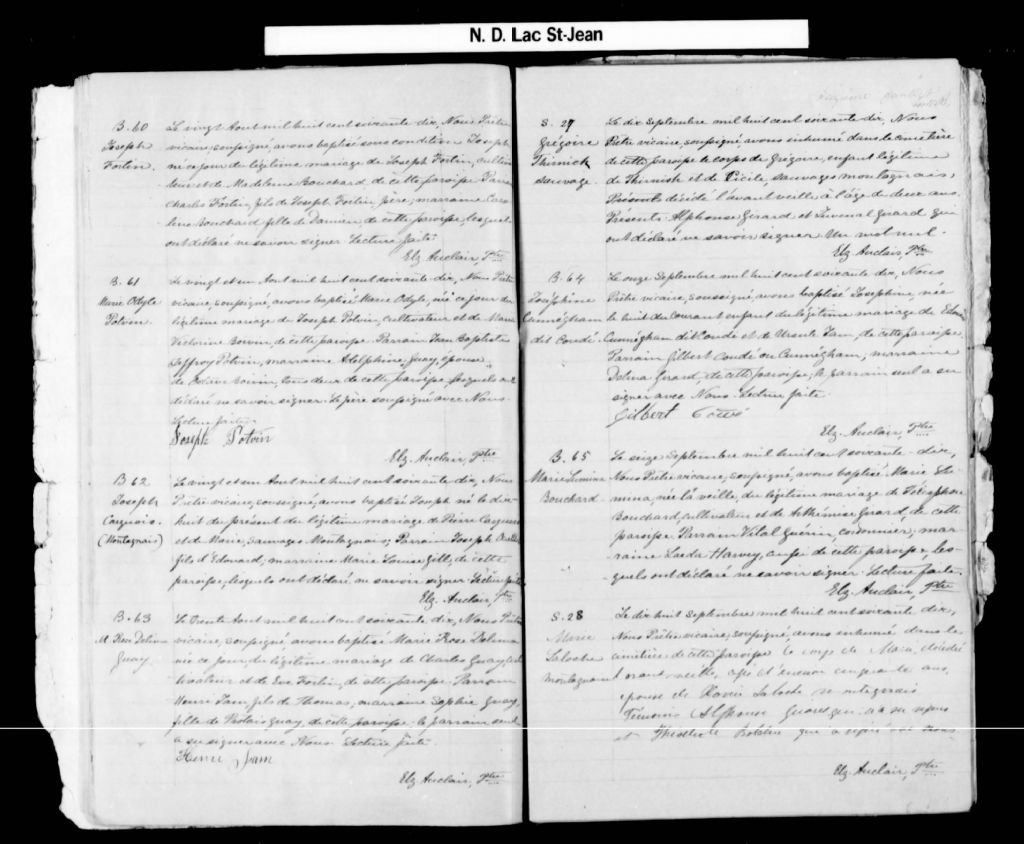 N. D. Lac St-Jean
B. 60
Joseph
Fortin.
Le vingt Aout mil huit cent soixante dix, Nous Prêtre
vicaire, soussigné, avons baptisé sous condition Joseph
né ce jour du légitime mariage de Joseph Fortin, cultiva
teur et de Madeleine Bouchard de cette paroisse. Parrain
Charles Fortin, fils de Joseph Fortin, père, marraine Caro
line Bouchard fille de Damien, de cette paroisse, lesquels
ont déclaré ne savoir signer. Lecture faite.
Elz. Auclair, Ptre
B. 61
Marie Odyle
Potvin.
Le vingt et un Aout mil huit cent soixante dix, Nous Prêtre
vicaire, soussigné, avons baptisé Marie Odyle, née ce jour du
légitime mariage de Joseph Potvin, cultivateur et de Marie
de cette paroisse. Parrain Jean Baptiste
Jeffroy Potvin, marraine Adelphine Guay, épouse
de tous deux de cette paroisse lesquels ont
déclaré ne savoir signer. Le père soussigné avec Nous.
Lecture faite.
Joseph Potvin
Elz. Auclair, Ptre
B. 62
Joseph
(Montagnais)
Le vingt et un Aout mil huit cent soixante dix, Nous
Prêtre vicaire, soussigné, avons baptisé Joseph né le dix
huit du présent du légitime mariage de Pierre
et de Marie, sauvages Montagnais; Parrain Joseph
fils d'Edouard; marraine Marie Louise Gill, de cette
paroisse, lesquels ont déclaré ne savoir signer. Lecture faite
Elz. Auclair, Ptre
B. 63
M. Rose Delima
Guay.
Le trente Aout mil huit cent soixante dix, Nous Prêtre
vicaire, soussigné, avons baptisé Marie Rose Delima
née ce jour, du légitime mariage de Charles Guay, cul
tivateur et de Eve Fortin, de cette paroisse. Parrain
Henri Jam, fils de Thomas, marraine Sophie Guay,
fille de Guay, de cette paroisse. Le parrain seul
a su signer avec Nous. Lecture faite.
Henri Jam
Elz. Auclair, Ptre
S. 27
Grégoire
Thirnish
sauvage.
Le dix Septembre mil huit cent soixante dix, Nous
Prêtre vicaire, soussigné, avons inhumé dans le cimetière
de cette paroisse le corps de Grégoire, enfant légitime
de Thirnish et de Cécile, sauvages montagnais,
décédé l'avant veille, à l'âge de deux ans.
Présents: Alphonse Girard et Juvenal Girard qui
ont déclaré ne savoir signer. Un mot nul.
Elz. Auclair, Ptre
B. 64
Joséphine
Cunnigham
dit Condé.
Le onze Septembre mil huit cent soixante dix, Nous
Prêtre vicaire, soussigné, avons baptisé Josephine, née
le huit du courant enfant du légitime mariage de
Cunnigham dit Condé et de Ursule Jam, de cette paroisse.
Parrain Gilbert Condé ou Cunnigham, marraine
Delina Girard, de cette paroisse; le parrain seul a su
signer avec Nous. Lecture faite.
Gilbert
Elz. Auclair, Ptre
B. 65
Bouchard
Le seize Septembre mil huit cent soixante dix,
Nous Prêtre vicaire, soussigné, avons baptisé Marie El
mina, née la veille, du légitime mariage de Télesphore
Bouchard, cultivateur et de Arthémise Girard, de cette
paroisse. Parrain Vital Guérin, cordonnier, mar
raine Harvey, aussi de cette paroisse, les
quels ont déclaré ne savoir signer. Lecture faite.
Elz. Auclair, Ptre
S. 28
Marie
Laloche
montagnaise
Le dix huit Septembre mil huit cent soixante dix,
Nous Prêtre vicaire, soussigné, avons inhumé dans le
cimetière de cette paroisse le corps de Marie, décédée
avant-veille, agée d'environ cinquante ans,
épouse de Laloche
Témoins Alphonse
et qui a signé
Elz. Auclair, Ptre